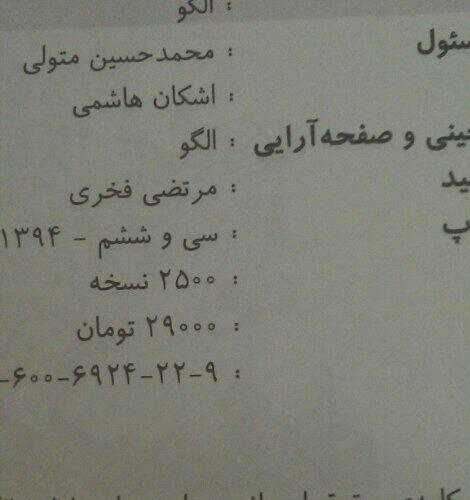 : الگو
: محمدحسین متولی
: اشکان هاشمی
و صفحه‌آرایی : الگو
: مرتضی فخری
: سی و ششم - ۱۳۹۴
: ۲۵۰۰ نسخه
: ۲۹۰۰۰ تومان
: ۹-۲۲-۶۹۲۴-۶۰۰-